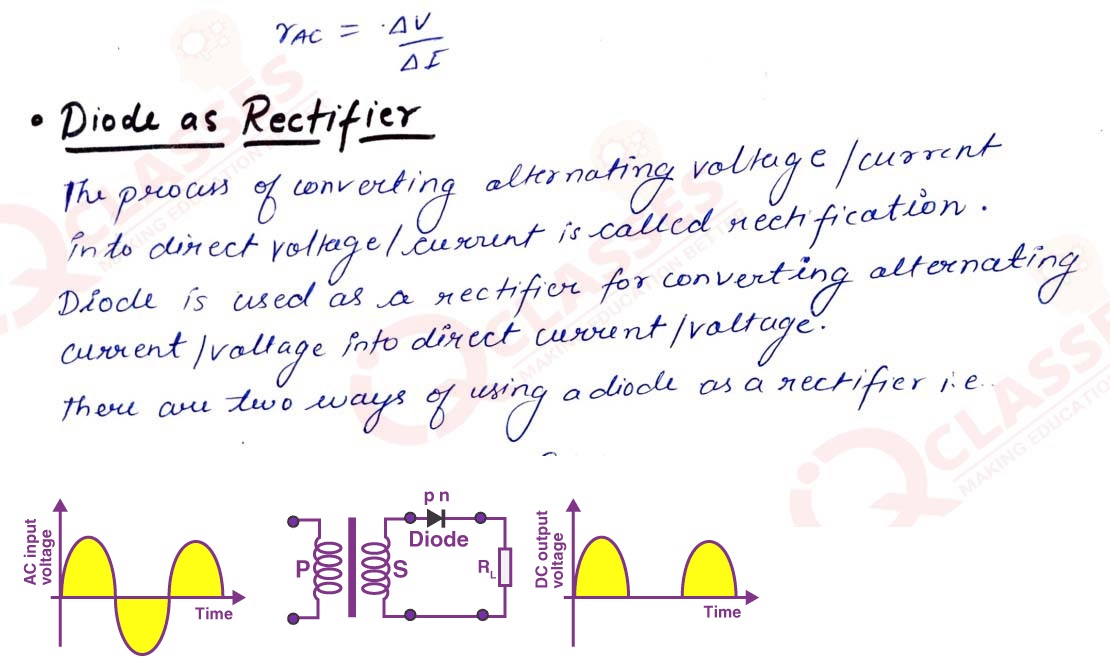 r_AC = ΔV / ΔI
• Diode as Rectifier
The process of converting alternating voltage/current
into direct voltage/current is called rectification.
Diode is used as a rectifier for converting alternating
current/voltage into direct current/voltage.
there are two ways of using a diode as a rectifier i.e.
AC input
voltage
Time
P
S
p n
Diode
R_L
DC output
voltage
Time
IQ CLASSES
MAKING EDUCATION BETTER